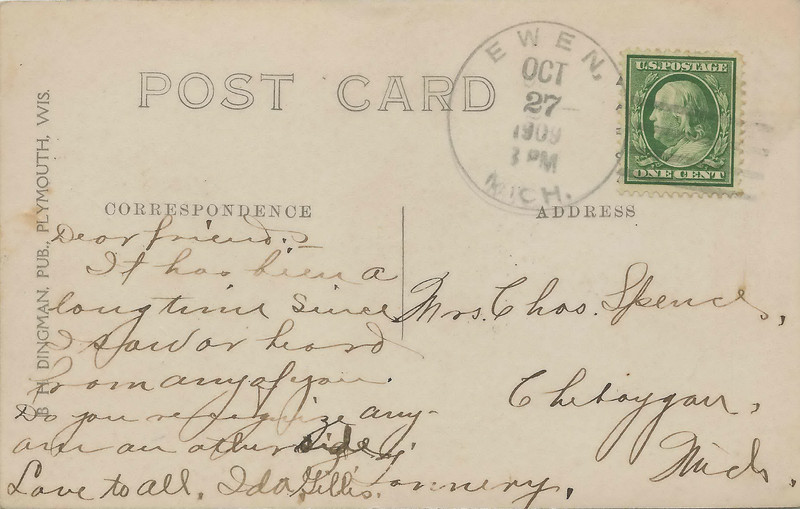 POST CARD
EWEN,
OCT
27
1909
3 PM
MICH.
U.S. POSTAGE
ONE CENT
B. H. DINGMAN, PUB., PLYMOUTH, WIS.
CORRESPONDENCE
Dear friend:-
It has been a
long time since
I saw or heard
from any of you.
Do you reqognize any-
one on other side,
Love to all. Ida Gillis.
ADDRESS
Mrs. Chas. Spence,
Cheboygan,
Mich.
Tannery,